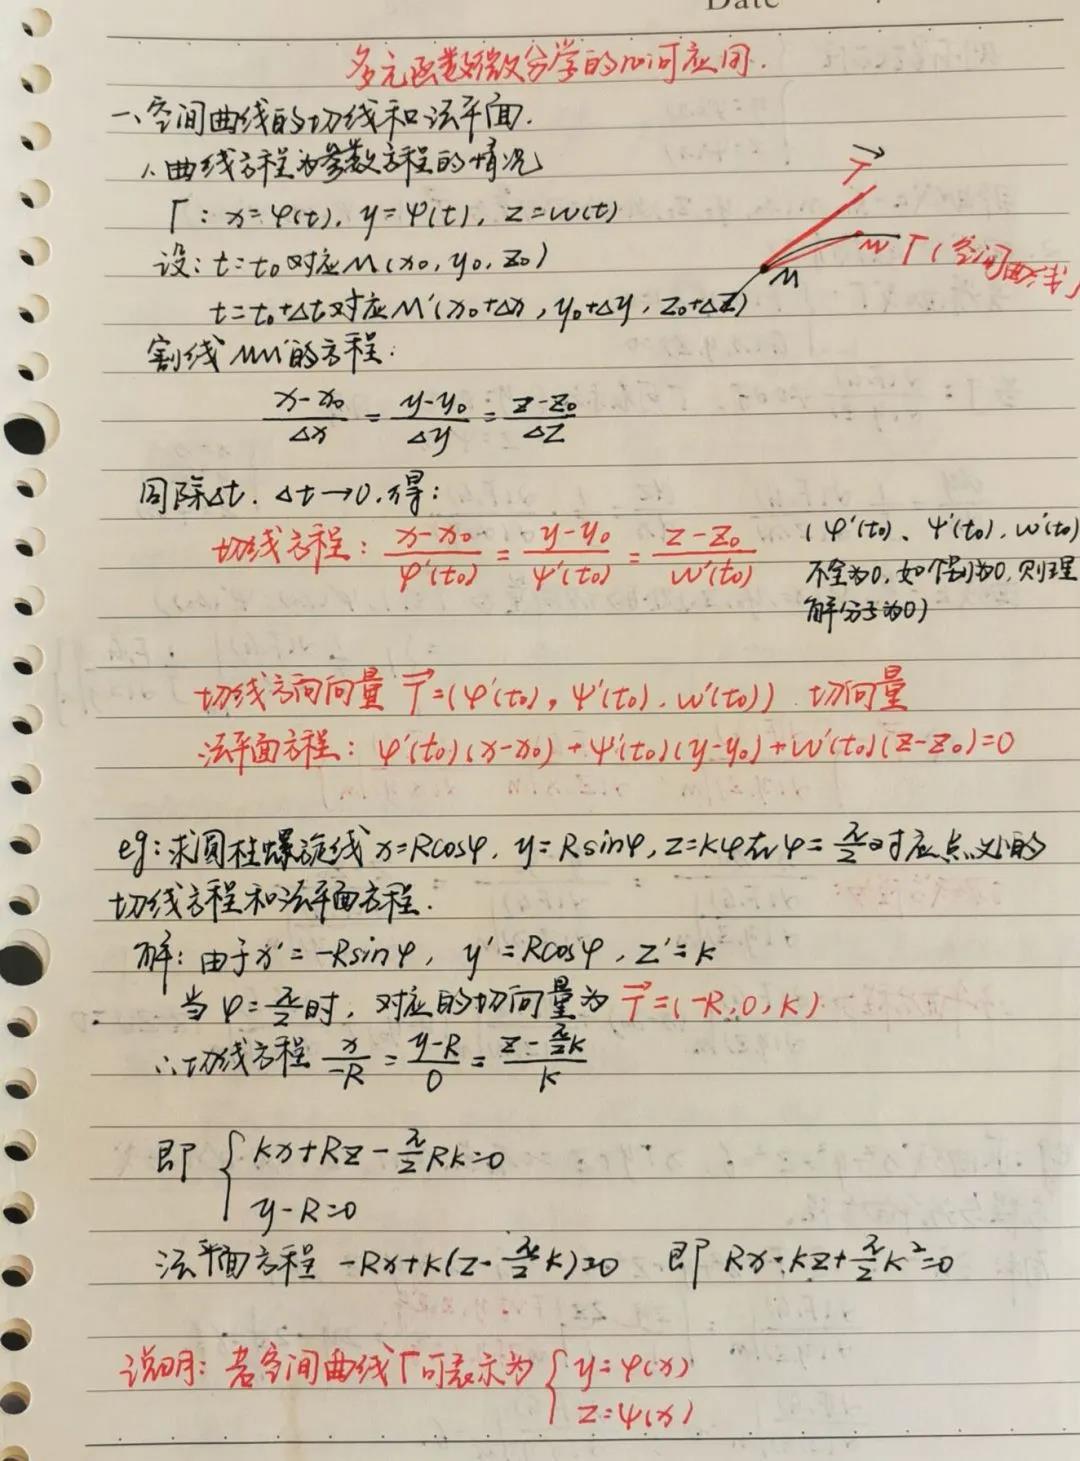 Date
多元函数微分学的几何应用.
一、空间曲线的切线和法平面.
1. 曲线方程为参数方程的情况
Γ: x=φ(t), y=ψ(t), z=w(t)
设: t=t₀对应M(x₀,y₀,z₀)
t=t₀+Δt对应M'(x₀+Δx, y₀+Δy, z₀+Δz)
T
M' Γ(空间曲线)
M
割线MM'的方程:
(x-x₀)/Δx = (y-y₀)/Δy = (z-z₀)/Δz
同除Δt. Δt→0.得:
切线方程: (x-x₀)/φ'(t₀) = (y-y₀)/ψ'(t₀) = (z-z₀)/w'(t₀)
(φ'(t₀)、ψ'(t₀), w'(t₀)
不全为0, 如个别为0, 则理
解分子为0)
切线方向向量 T=(φ'(t₀), ψ'(t₀), w'(t₀)) 切向量
法平面方程: φ'(t₀)(x-x₀)+ψ'(t₀)(y-y₀)+w'(t₀)(z-z₀)=0
eg: 求圆柱螺旋线 x=Rcosφ, y=Rsinφ, z=kφ在φ=π/2对应点处的
切线方程和法平面方程.
解: 由于x'=-Rsinφ, y'=Rcosφ, z'=k
当φ=π/2时, 对应的切向量为 T=(-R,0,k).
∴切线方程 x/-R = (y-R)/0 = (z-π/2k)/k
即 { kx+Rz-π/2Rk=0
y-R=0
法平面方程 -Rx+k(z-π/2k)=0 即 Rx-kz+π/2k²=0
说明: 若空间曲线Γ可表示为 { y=φ(x)
z=ψ(x)